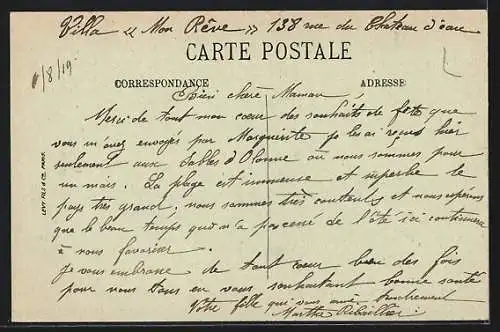 Villa « Mon Rêve » 138 rue du Chateau d'eau
CARTE POSTALE
1/8/19
CORRESPONDANCE ADRESSE
Bien chère Maman,
Merci de tout mon cœur des souhaits de fête que
vous m'avez envoyés par Marguerite je les ai reçus hier
seulement aux Sables d'Olonne où nous sommes pour
un mois. La plage est immense et superbe le
pays très grand, nous sommes très contents et nous espérons
que le beau temps qui n'a pas cessé de l'été ici continuera
à nous favoriser.
Je vous embrasse de tout cœur bien des fois
pour nous tous en vous souhaitant bonne santé
Votre fille qui vous aime tendrement
Marthe
LEVY FILS & Cie, PARIS